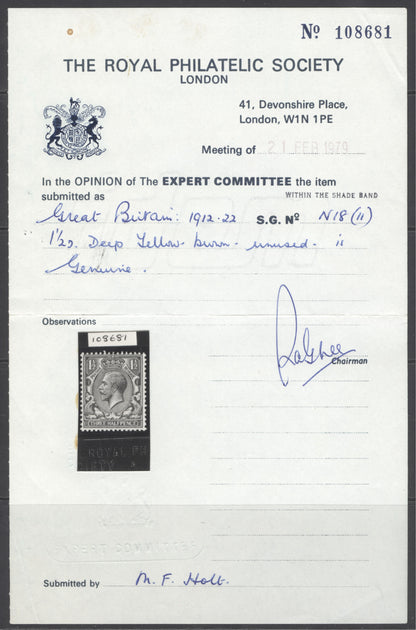 Nº 108681
THE ROYAL PHILATELIC SOCIETY
LONDON
41, Devonshire Place,
London, W1N 1PE
Meeting of 21 FEB 1979
In the OPINION of The EXPERT COMMITTEE the item
submitted as WITHIN THE SHADE BAND
Great Britain: 1912-22 S.G. Nº N18 (11)
1½d. Deep Yellow-brown - unused - is
Genuine.
Observations
Chairman
108681
1½ 1½
THREE HALFPENCE
ROYAL PH
EXPERT COMMITTEE
Submitted by M. F. Holt.